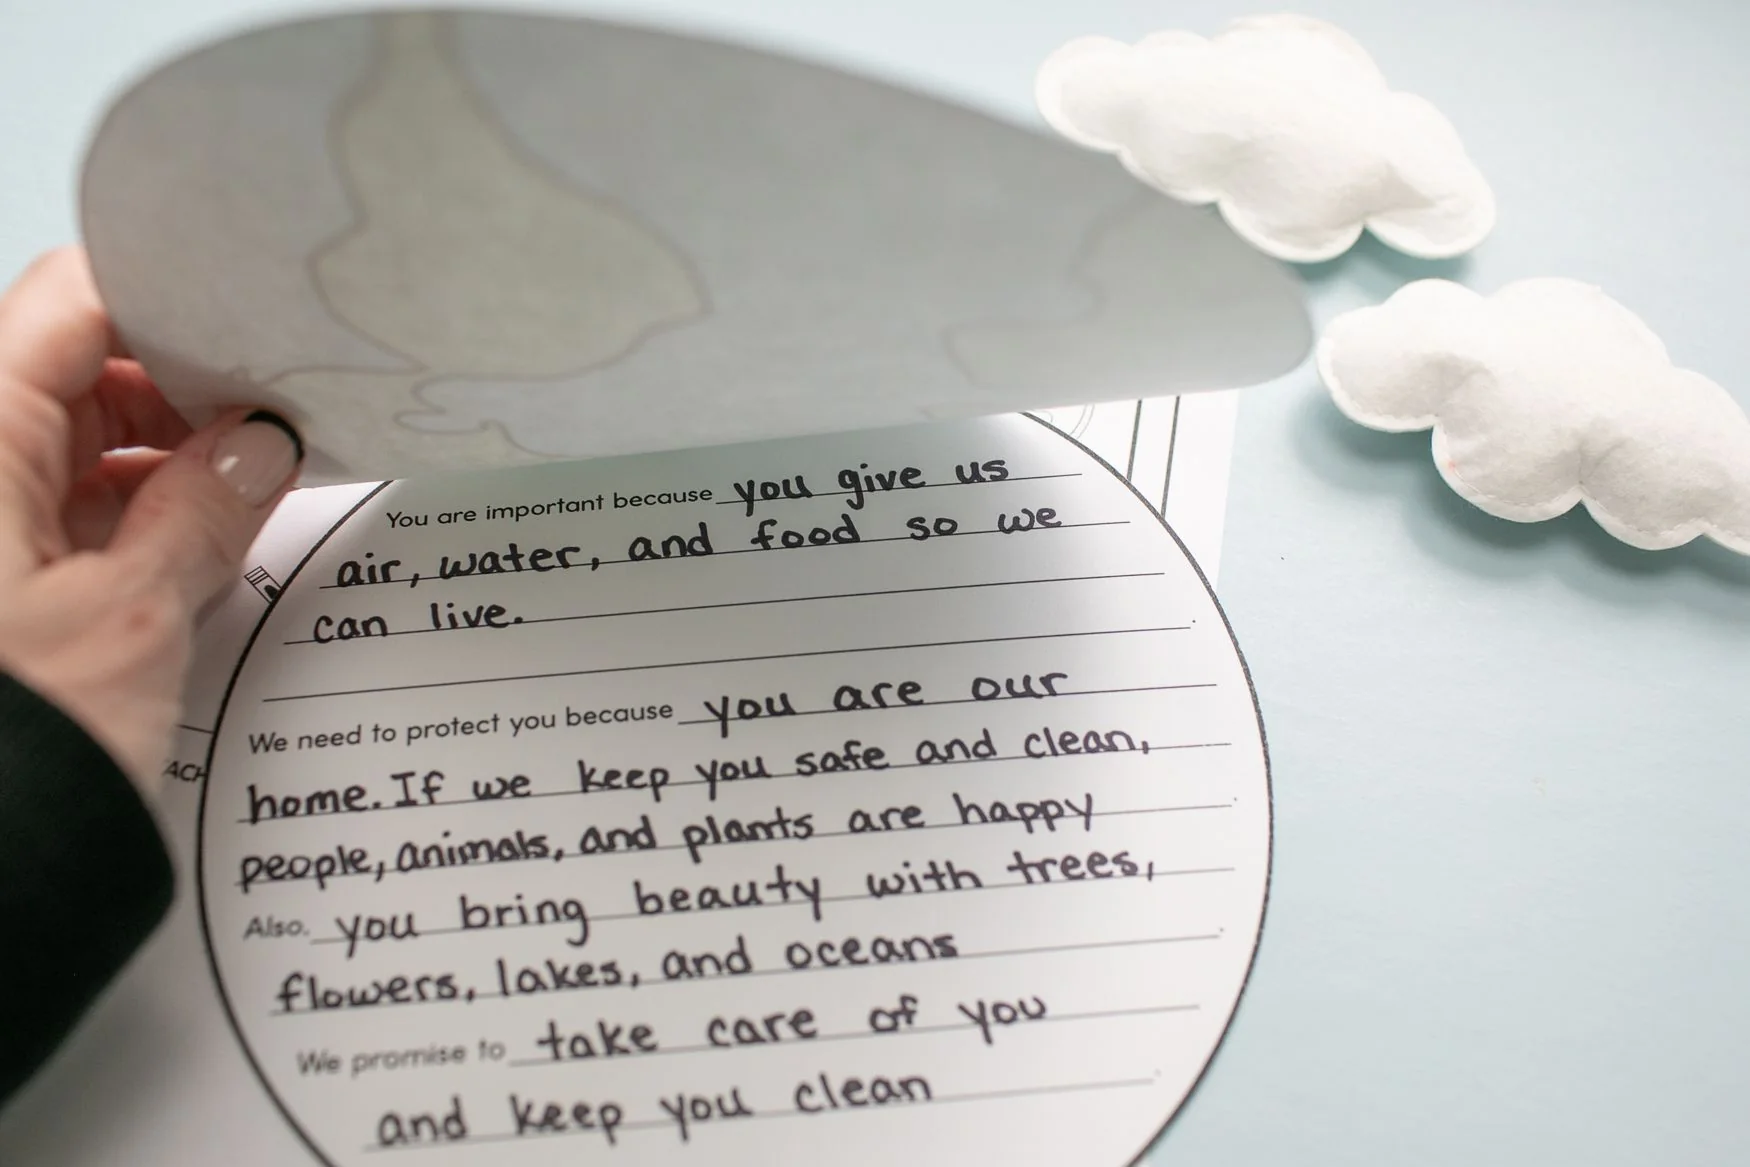 You are important because you give us
air, water, and food so we
can live.
We need to protect you because you are our
home. If we keep you safe and clean,
people, animals, and plants are happy
Also, you bring beauty with trees,
flowers, lakes, and oceans
We promise to take care of you
and keep you clean